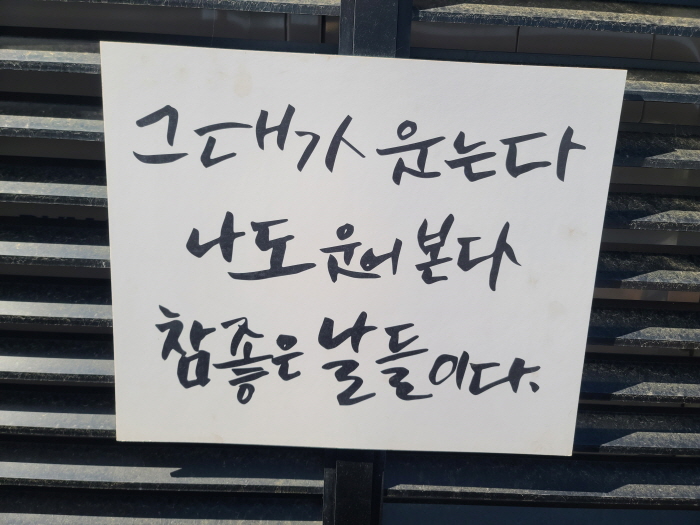 그대가 웃는다
나도 웃어 본다
참좋은 날들이다.